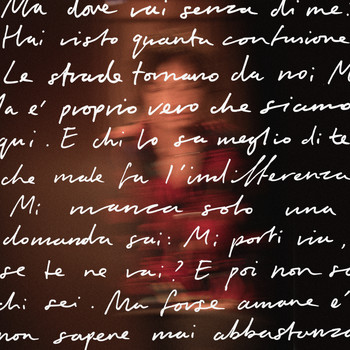 Ma dove vai senza di me?
Hai visto quanta confusione
Le strade tornano da noi M
a é proprio vero che siamo
qui. E chi lo sa meglio di te
che male fa l'indifferenza
Mi manca solo una
domanda sai: Mi porti via,
se te ne vai? E poi non so
chi sei. Ma forse amare é
non sapere mai abbastanza